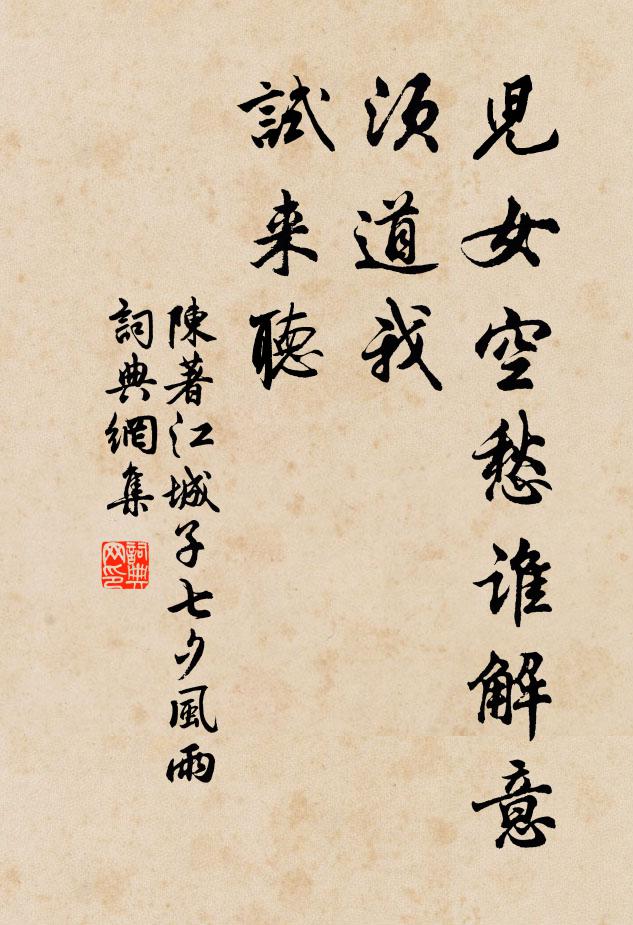 兒女空愁誰解意
須道我
試来聽
陳著江城子七夕風雨
詞典網集
詞典网印